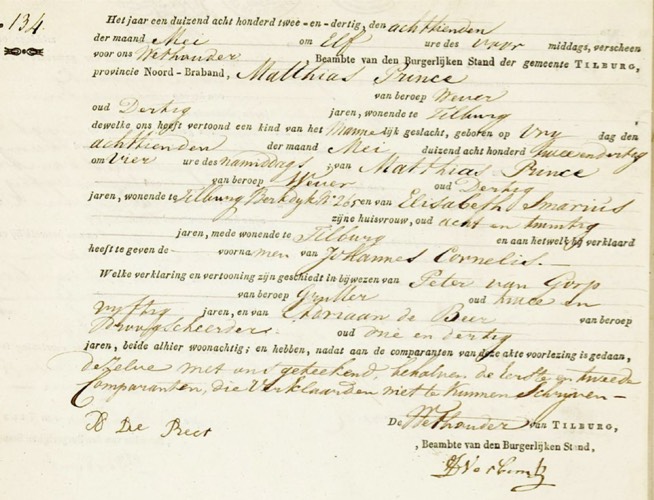 134.
Het jaar een duizend acht honderd twee-en-dertig, den achttienden
der maand Mei om Elf ure des voor middags, verscheen
voor ons Wethouder Beambte van den Burgerlijken Stand der gemeente TILBURG,
provincie Noord-Braband, Matthias Prince
van beroep Wever
oud Dertig jaren, wonende te Tilburg
dewelke ons heeft vertoond een kind van het Manne lijk geslacht, geboren op Vry dag den
achttienden der maand Mei duizend acht honderd twee en dertig
om Vier ure des namiddags ; van Matthias Prince
van beroep Wever oud Dertig
jaren, wonende te Tilburg Berkdyk No 265 en van Elisabeth Smarius
zijne huisvrouw, oud acht en twintig
jaren, mede wonende te Tilburg en aan hetwelk hy verklaard
heeft te geven de voorna men van Johannes Cornelis.
Welke verklaring en vertooning zijn geschiedt in bijwezen van Peter van Gorp
van beroep oud twee en
vyftig jaren, en van Adriaan de Beer van beroep
Droogscheerder oud one en dertig
jaren, beide alhier woonachtig; en hebben, nadat aan de comparanten van deze akte voorlezing is gedaan,
dezelve met ons geteekend, behalven de Eerste en tweede
Comparanten, die Verklaarden niet te Kunnen Schryven
De Wethouder van TILBURG,
Beambte van den Burgerlijken Stand,
De Beer